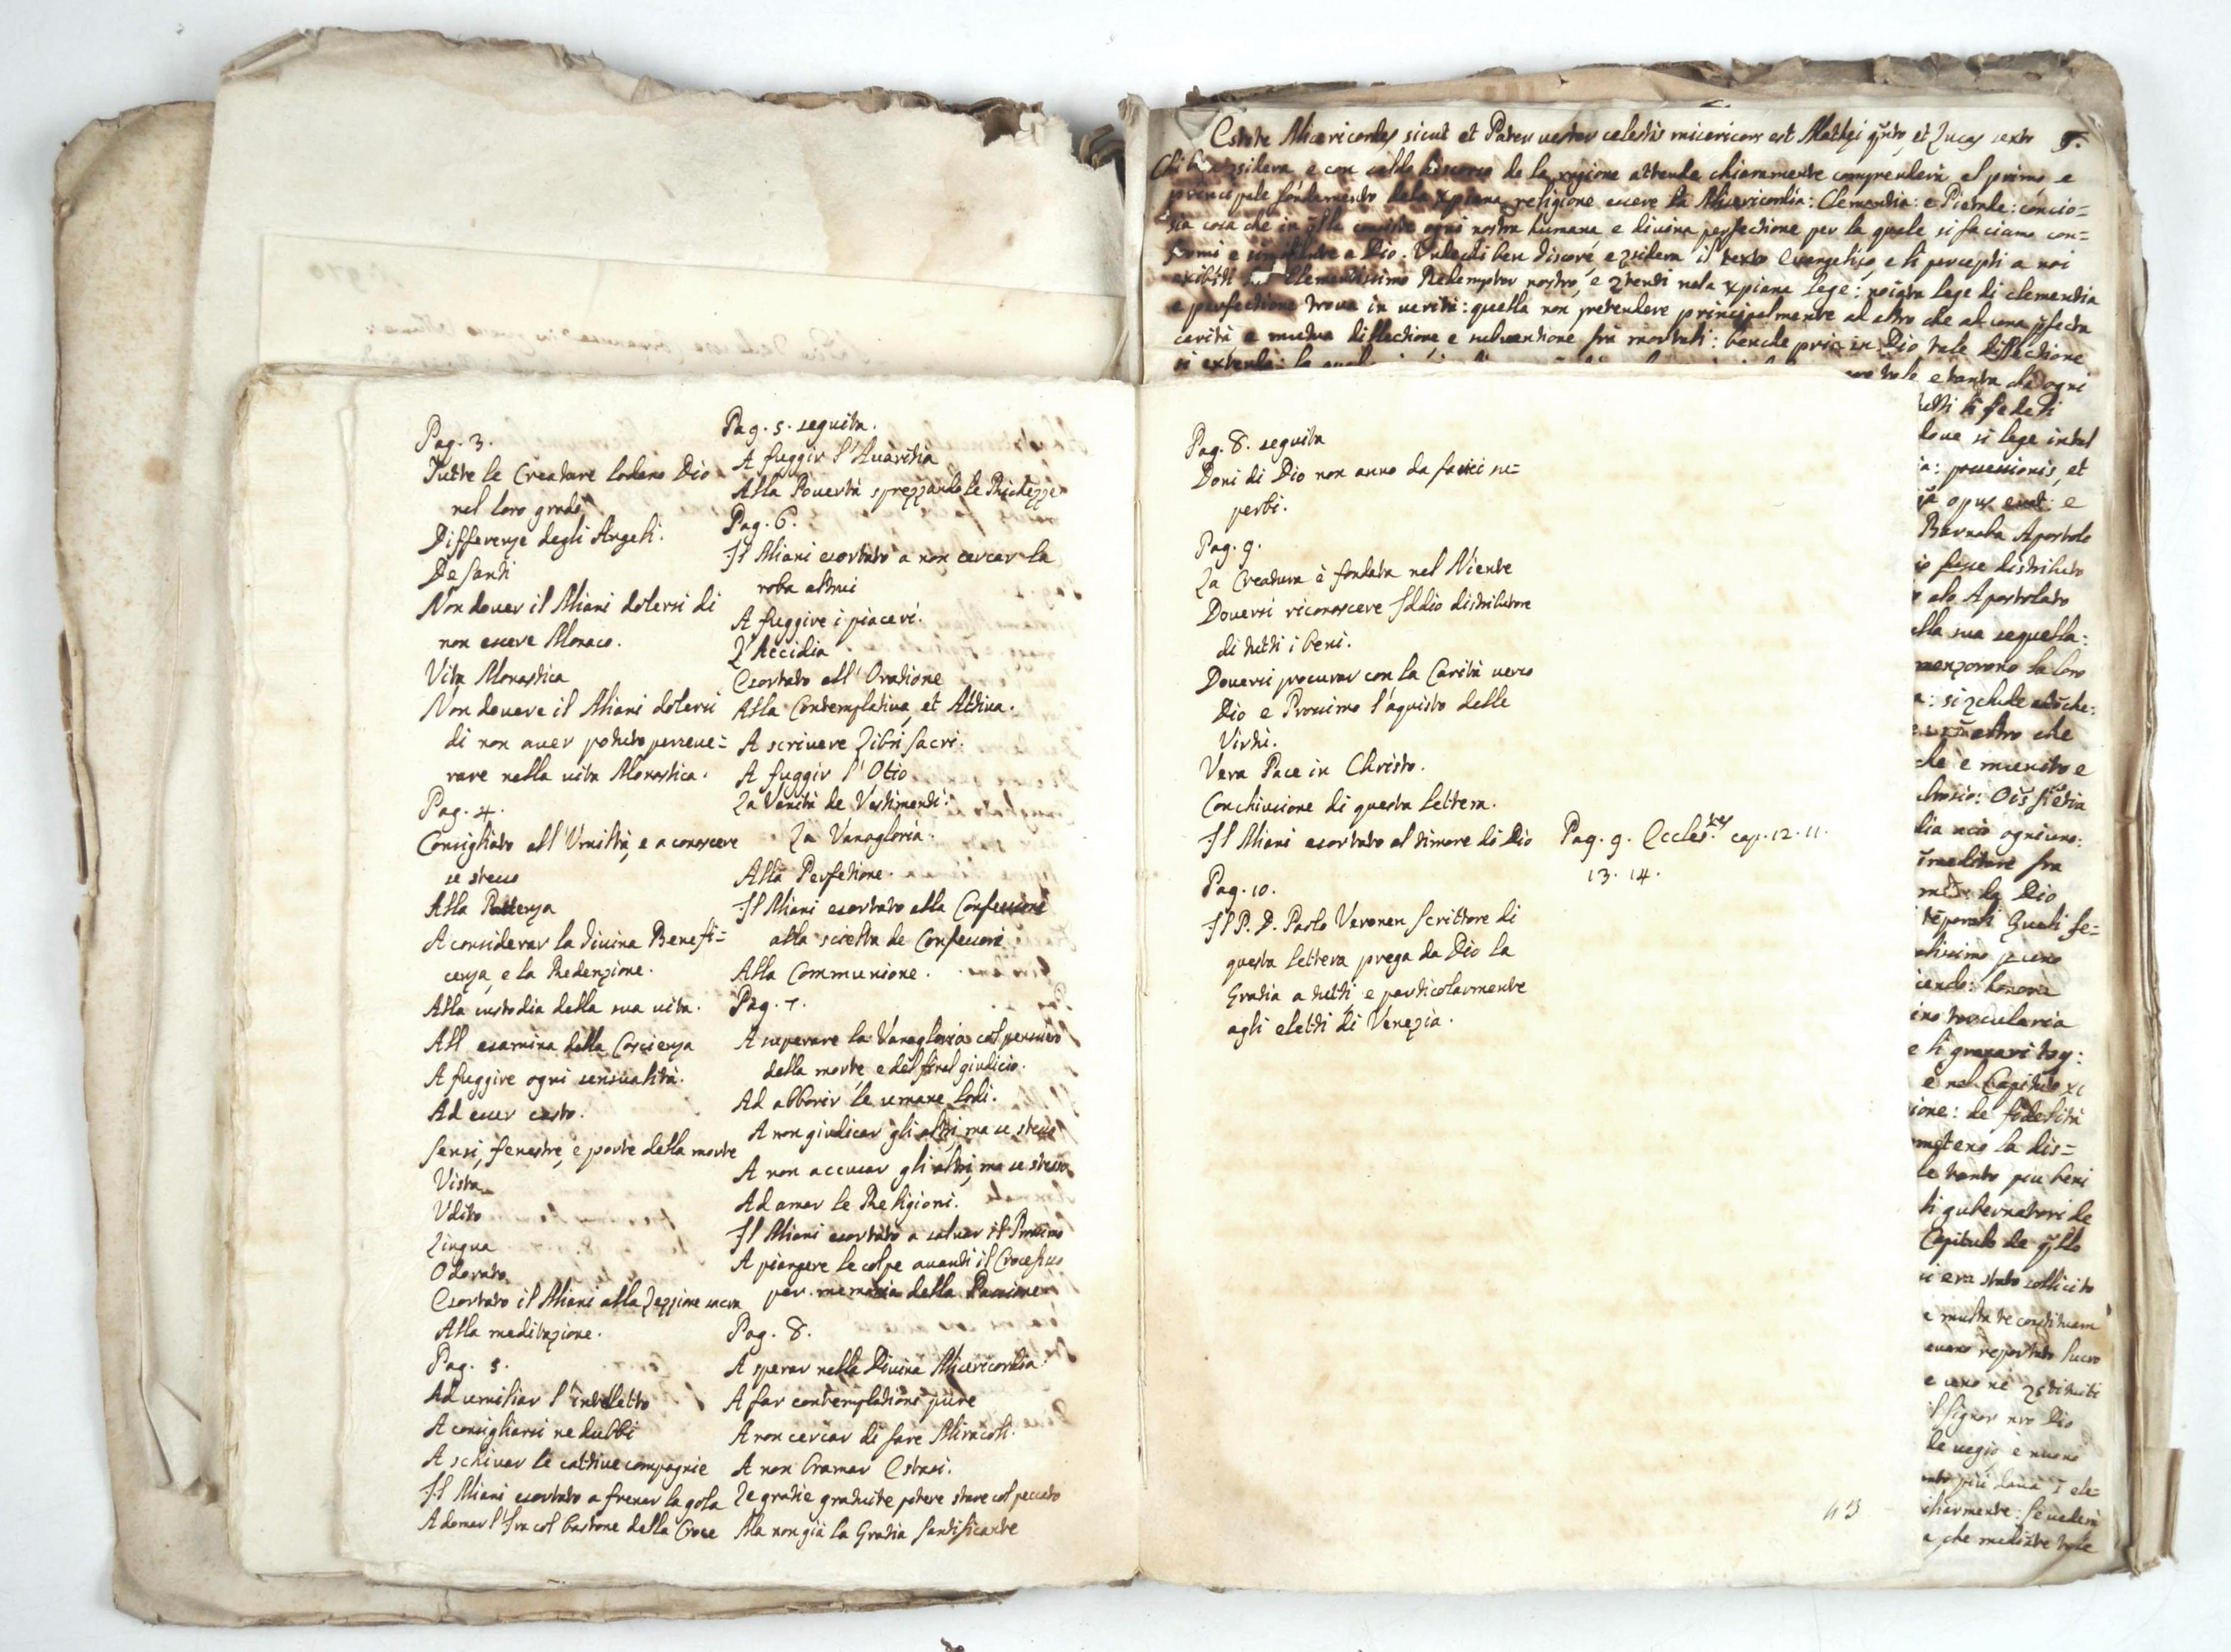 Pag. 3.
Tutte le Creature lodano Dio
nel loro grado
Differenze degli Angeli.
De Santi
Non dover il Miani dolersi di
non essere Monaco.
Vita Monastica
Non dovere il Miani dolersi
di non aver potuto perseve=
rare nella vita Monastica.
Pag. 4.
Consigliato all'Umiltà, e a conoscere
se stesso
Alla Pazienza
A considerar la divina Benefi=
cenza, e la Redenzione.
Alla custodia della sua vita.
All esamina della Coscienza
A fuggire ogni sensualità.
Ad esser casto.
Sensi, fenestre, e porte della morte
Vista
Udito
Lingua
Odorato
Esortato il Miani alla Lezzione sacra
Alla meditazione.
Pag. 5.
Ad umiliar l'intelletto
A consigliarsi ne dubbi
A schivar le cattive compagnie
Il Miani esortato a frenar la gola
A domar l'Ira col bastone della Croce
Pag. 5. seguita.
A fuggir l'Avaritia
Alla Povertà sprezzando le Richezze
Pag. 6.
Il Miani esortato a non cercar la
roba altrui
A fuggire i piaceri.
L'Accidia
Esortato all'Oratione
Alla Contemplativa, et Attiva.
A scrivere Libri sacri.
A fuggir l'Otio
La Vanità de Vestimenti.
La Vanagloria.
Alla Perfetione.
Il Miani esortato alla Confessione
alla scielta de Confessori
Alla Communione.
Pag. 7.
A superare la Vanagloria col pensiero
della morte, e del final giudicio.
Ad abborir le umane lodi.
A non giudicar gli altri, ma se stesso
A non accusar gli altri, ma se stesso
Ad amar le Religioni.
Il Miani esortato a salvar il Prossimo
A piangere le colpe avanti il Crocefisso
per memoria della Passione
Pag. 8.
A sperar nella Divina Misericordia.
A far contemplationi pure
A non cercar di fare Miracoli.
A non bramar Estasi.
Le gratie gratuite potere stare col peccato
Ma non già la Gratia santificante
Pag. 8. seguita
Doni di Dio non anno da farci su=
perbi.
Pag. 9.
La Creatura è fondata nel Niente
Doversi riconoscere Iddio distributore
di tutti i beni.
Doversi procurar con la Carità verso
Dio e Prossimo l'aquisto delle
Virtù.
Vera Pace in Christo.
Conchiusione di questa lettera.
Il Miani esortato al timore di Dio
Pag. 9. Eccles. cap. 12. 11.
13. 14.
Pag. 10.
Il P. D. Paolo Veronen Scrittore di
questa lettera prega da Dio la
Gratia a tutti, e particolarmente
agli eletti di Venezia.
43
Estote Misericordes sicut et Pater vester celestis misericors est Mathei et Lucas sexto
de la ragione attende chiaramente comprenderà el primo e
principale fondamento dela xpiana religione essere la Misericordia: Clementia: e Pietade: concio=
sia cosa che in consiste ogni nostra humana e divina perfectione per la quale si faciamo con=
formi e a Dio. ben e il texto Evangelico, e li percepti a noi
exibiti Clementissimo Redemptor nostro, e nela xpiana lege: lege di clementia
e perfectione trova in verità: quella non pretendere principalmente al altro che ad una
carità e mutua dillectione, e subventione frà mortali: benche in Dio tale dillectione
si extenda: la
tale e tanta che ogni
li fedeli
dove si lege
possessionis, et
opus erat: e
Barnaba Apostolo
distributo
Apostolato
sua sequella:
la loro
che
che è munito e
ogniuno:
fra
Dio
fe=
e nel Capitulo xi
de fidelità
la dis=
le tanto piu beni
li gubernatori de
Capitulo de
era stato sollicito
multa te constituam
reportato lucro
Signor nro Dio
ele=
Se vederà
che